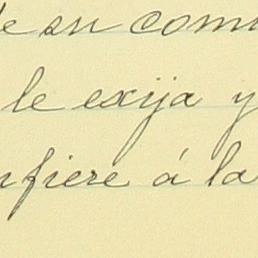 de su com
le exija y
nfiere á la